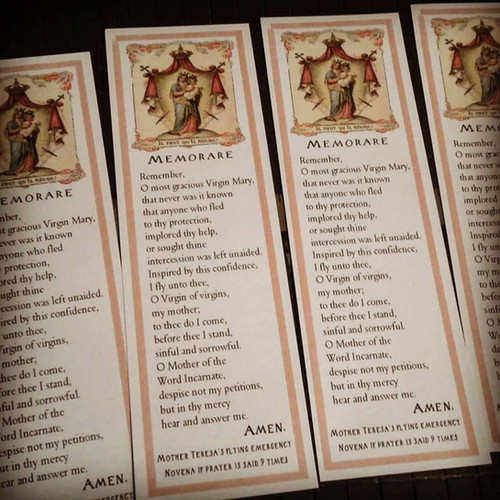 Il faut qu'Il règne!
MORARE
mber,
most gracious Virgin Mary,
never was it known
anyone who fled
protection,
ored thy help,
ought thine
rcession was left unaided.
ired by this confidence,
unto thee,
irgin of virgins,
mother;
thee do I come,
before thee I stand,
ful and sorrowful.
Mother of the
Word Incarnate,
despise not my petitions,
but in thy mercy
hear and answer me.
AMEN.
EMERGENCY
Il faut qu'Il règne!
MEMORARE
Remember,
O most gracious Virgin Mary,
that never was it known
that anyone who fled
to thy protection,
implored thy help,
or sought thine
intercession was left unaided.
Inspired by this confidence,
I fly unto thee,
O Virgin of virgins,
my mother;
to thee do I come,
before thee I stand,
sinful and sorrowful.
O Mother of the
Word Incarnate,
despise not my petitions,
but in thy mercy
hear and answer me.
AMEN.
MOTHER TERESA'S FLYING EMERGENCY
NOVENA IF PRAYER IS SAID 9 TIMES
Il faut qu'Il règne!
MEMORARE
Remember,
O most gracious Virgin Mary,
that never was it known
that anyone who fled
to thy protection,
implored thy help,
or sought thine
intercession was left unaided.
Inspired by this confidence,
I fly unto thee,
O Virgin of virgins,
my mother;
to thee do I come,
before thee I stand,
sinful and sorrowful.
O Mother of the
Word Incarnate,
despise not my petitions,
but in thy mercy
hear and answer me.
AMEN.
MOTHER TERESA'S FLYING EMERGENCY
NOVENA IF PRAYER IS SAID 9 TIMES
MEMO
Remember,
O most
that never
that any
to thy
implored
or sought
intercession
Inspired
I fly
O Virgin
my
to thee
before
sinful
O Mo
Word